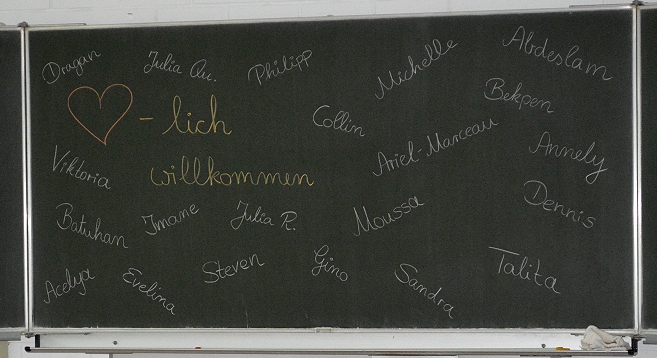 Dragan
Julia Qu.
Philipp
Michelle
Abdeslam
- lich
Collin
Bekpen
Viktoria
willkommen
Ariel-Marceau
Annely
Batuhan
Imane
Julia R.
Moussa
Dennis
Acelya
Evelina
Steven
Gino
Sandra
Talita